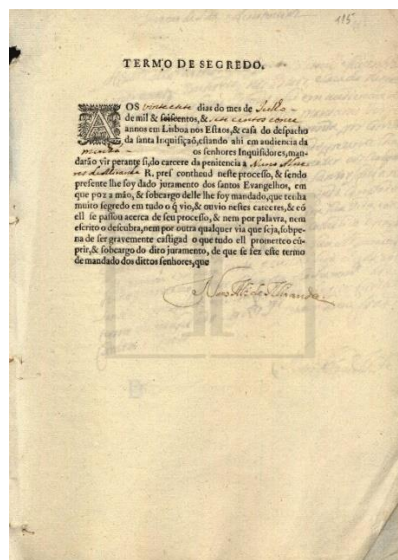 115
TERMO DE SEGREDO.
AOS vinte sete dias do mes de Julho
de mil & seiscentos, &
annos em Lisboa nos Estaos, & casa do despacho
da santa Inquisição, estando ahi em audiencia da
os senhores Inquisidores, man-
darão vir perante si, do carcere da penitencia a Nuno
R. pres contheud neste processo, & sendo
presente lhe foy dado juramento dos santos Evangelhos, em
que poz a mão, & sobcargo delle lhe foy mandado, que tenha
muito segredo em tudo o q̃ vio, & ouvio nestes carceres, & cõ
ell se passou acerca de seu processo, & nem por palavra, nem
escrito o descubra, nem por outra qualquer via que seja, sobpe-
na de ser gravemente castigad o que tudo ell prometeo cũ-
prir, & sobcargo do dito juramento, de que se fez este termo
de mandado dos dittos senhores, que
de Miranda